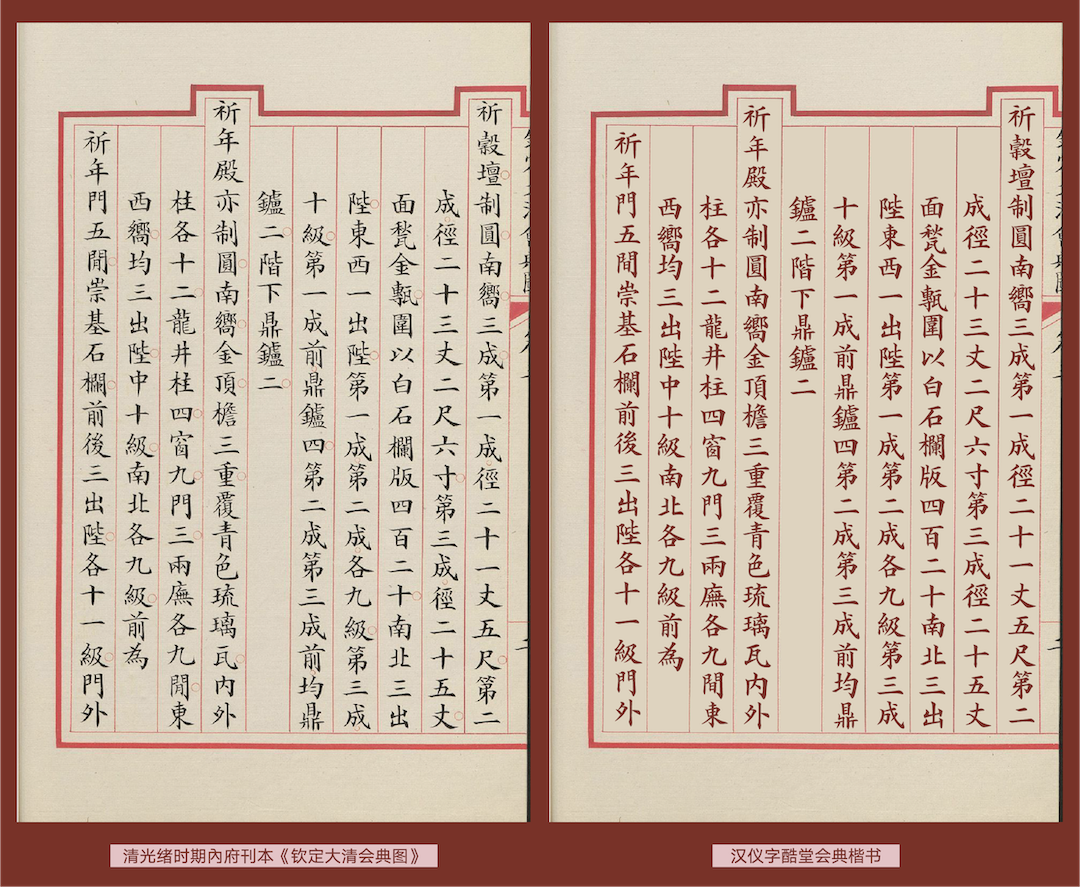 祈穀壇制圓南嚮三成第一成徑二十一丈五尺第二
成徑二十三丈二尺六寸第三成徑二十五丈
面甃金甎圍以白石欄版四百二十南北三出
陛東西一出陛第一成第二成各九級第三成
十級第一成前鼎鑪四第二成第三成前均鼎
鑪二階下鼎鑪二
祈年殿亦制圓南嚮金頂檐三重覆青色琉璃瓦内外
柱各十二龍井柱四窗九門三兩廡各九閒東
西嚮均三出陛中十級南北各九級前為
祈年門五閒崇基石欄前後三出陛各十一級門外
清光绪时期内府刊本《钦定大清会典图》
祈穀壇制圓南嚮三成第一成徑二十一丈五尺第二
成徑二十三丈二尺六寸第三成徑二十五丈
面甃金甎圍以白石欄版四百二十南北三出
陛東西一出陛第一成第二成各九級第三成
十級第一成前鼎鑪四第二成第三成前均鼎
鑪二階下鼎鑪二
祈年殿亦制圓南嚮金頂檐三重覆青色琉璃瓦内外
柱各十二龍井柱四窗九門三兩廡各九間東
西嚮均三出陛中十級南北各九級前為
祈年門五間崇基石欄前後三出陛各十一級門外
汉仪字酷堂会典楷书